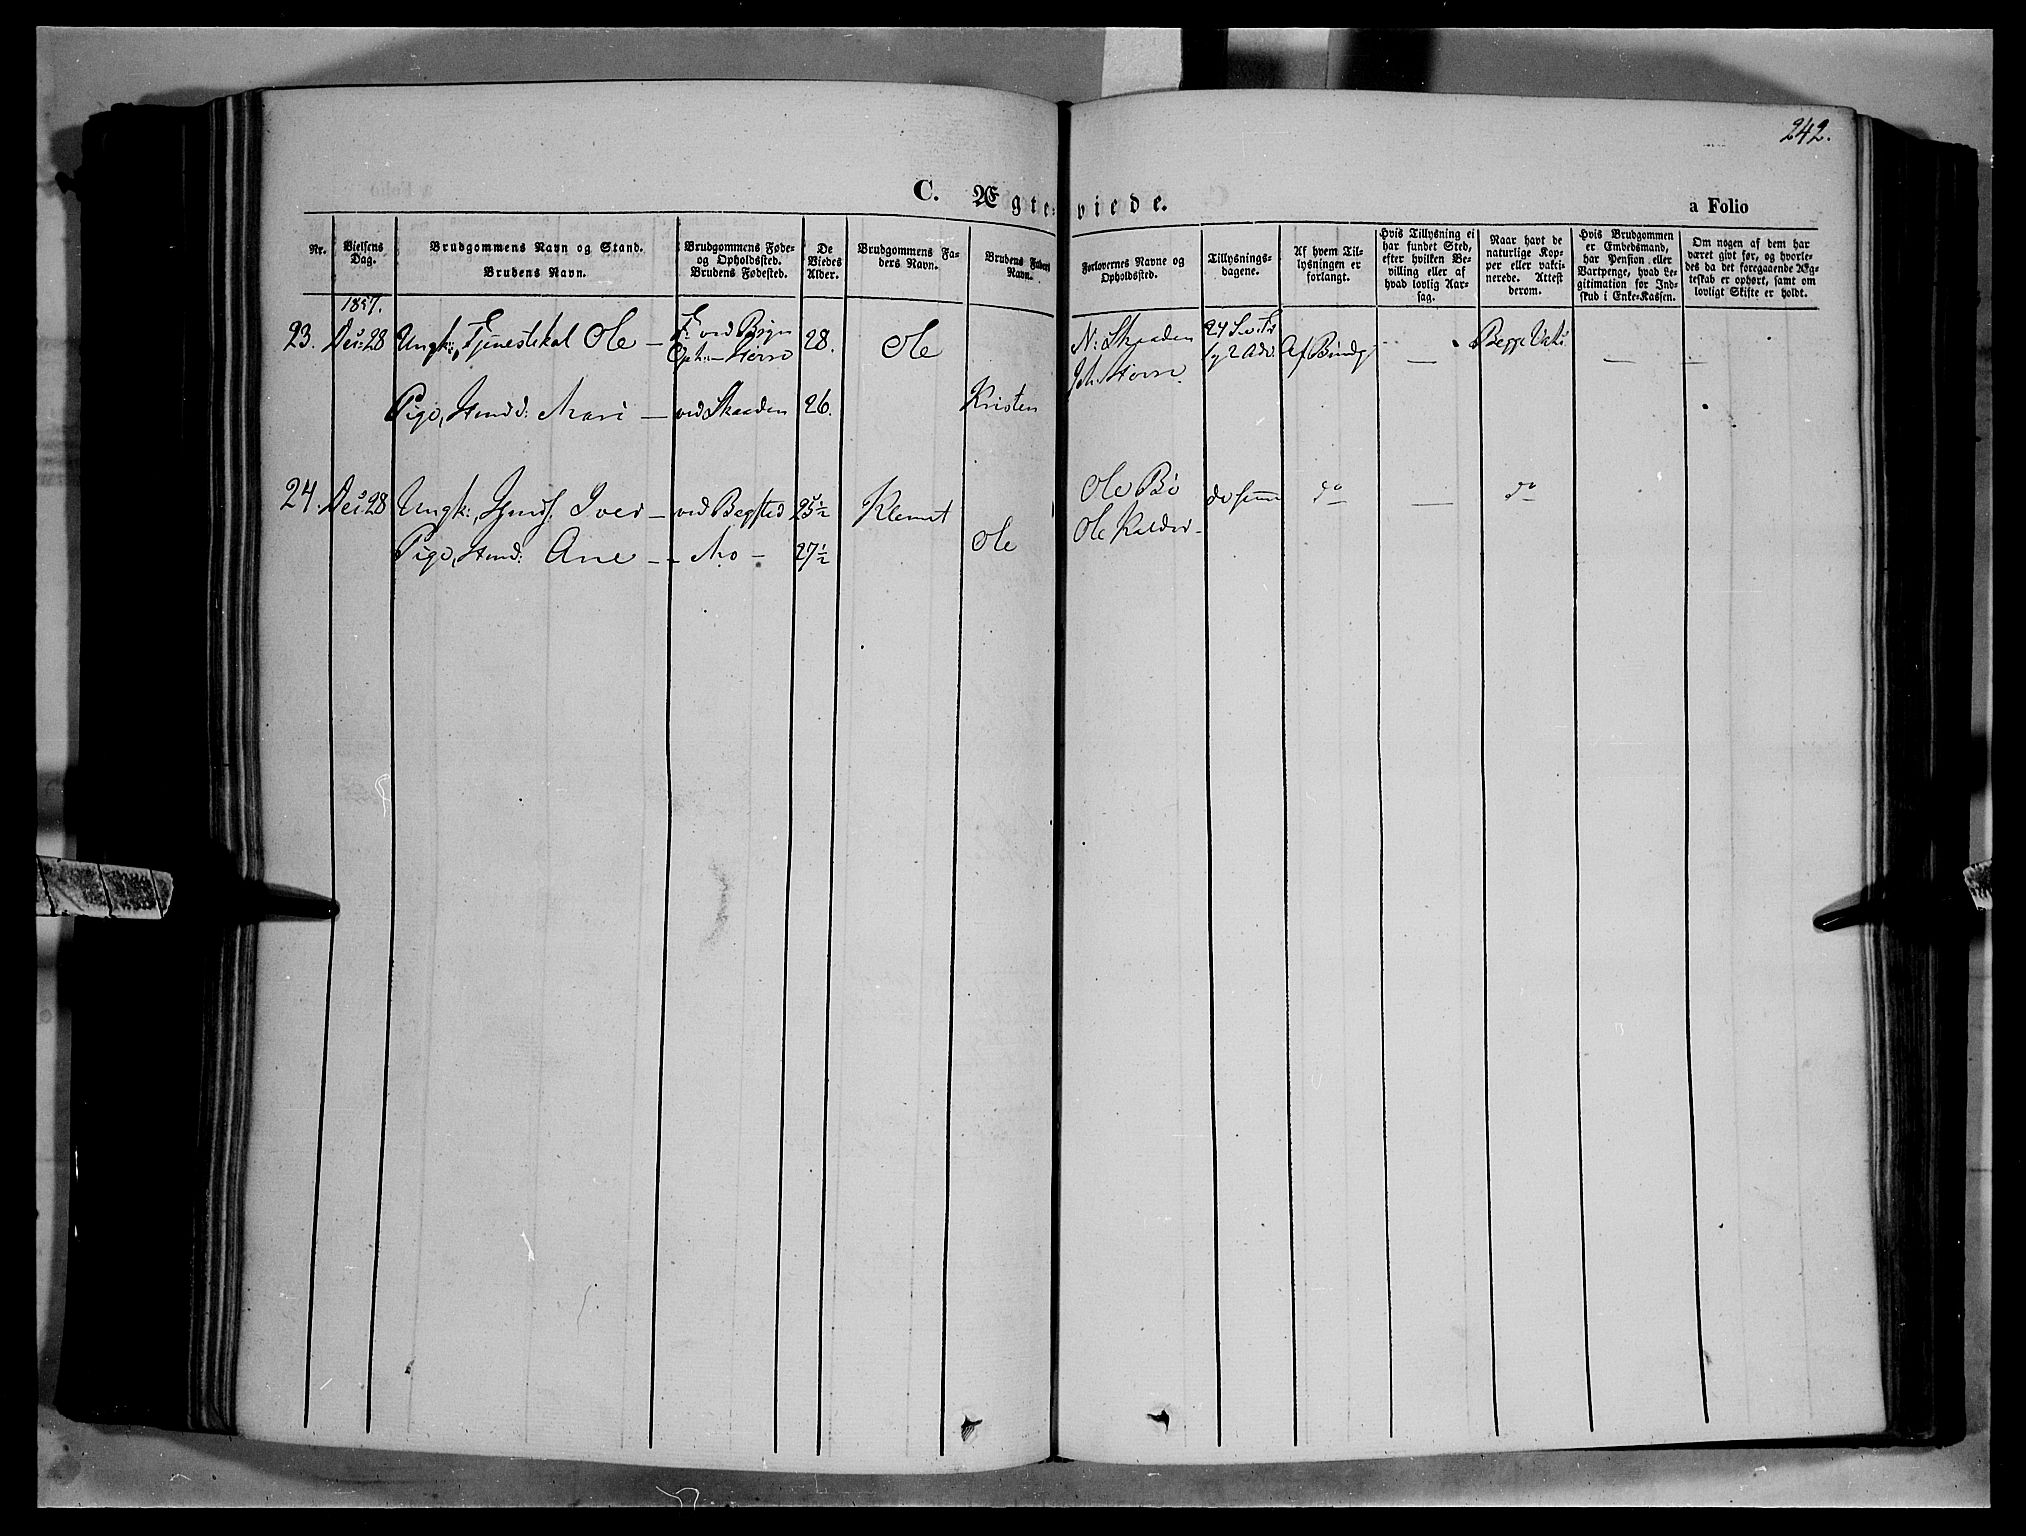 242.
C. Ægteviede.
a Folio
Nr.
Vielsens Dag.
Brudgommens Navn og Stand.
Brudens Navn.
Brudgommens Føde-
og Opholdssted.
Brudens Fødested.
De
Viedes
Alder.
Brudgommens Fa-
ders Navn.
Brudens Faders
Navn.
Forlovernes Navne og
Opholdssted.
Tillysnings-
dagene.
Af hvem Til-
lysningen er
forlangt.
Hvis Tillysning ei
har fundet Sted,
efter hvilken Be-
villing eller af
hvad lovlig Aar-
sag.
Naar havt de
naturlige Kop-
per eller vakci-
nerede. Attest
derom.
Hvis Brudgommen
er Embedsmand,
har Pension eller
Vartpenge, hvad Le-
gitimation for Ind-
skud i Enke-Kassen.
Om nogen af dem har
været givt før, og hvorle-
des da det foregaaende Æg-
teskab er ophørt, samt om
lovligt Skifte er holdt.
1857.
23. Dec: 28 Ungk:, Tjenestekal Ole — F: ved 28. Ole N: Skaaden Af Brudg — Begge — —
Pige, Mari — ved Skaaden 26. Kristen
24. Dec: 28 Ungk:, Iver — ved 25 1/2 Klemet Ole Bø do — do
Pige, Ane — Mo — 27 1/2 Ole Ole